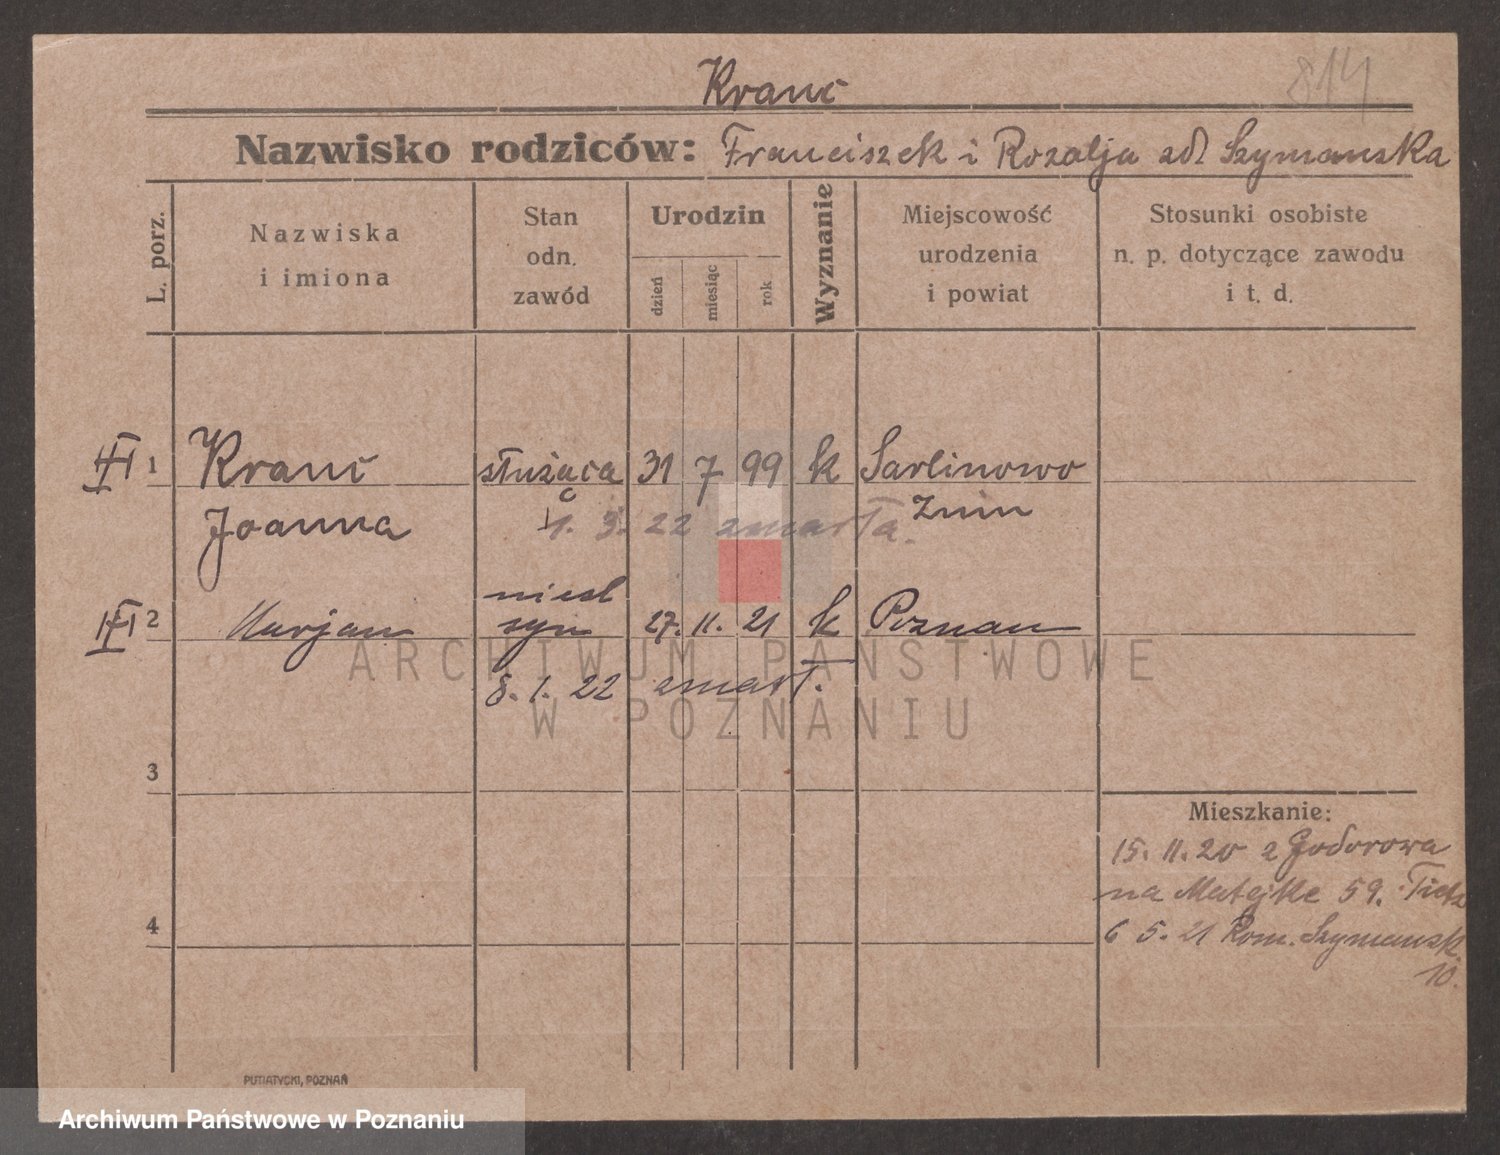 814
Kranc
Nazwisko rodziców: Franciszek i Rozalja zd Szymanska
L. porz.
Nazwiska
i imiona
Stan
odn.
zawód
Urodzin
dzień
miesiąc
rok
Wyznanie
Miejscowość
urodzenia
i powiat
Stosunki osobiste
n. p. dotyczące zawodu
i t. d.
1 Kranc służąca 31 7 99 k Sarbinowo
Joanna 1. 3. 22 zmarła. Żnin
nieśl
2 Marjan syn 27. 11. 21 k Poznan
8. 1. 22 zmarł.
ARCHIWUM PAŃSTWOWE
W POZNANIU
3
Mieszkanie:
15. 11. 20 z Godorowa
na Matejke 59. Tietz
4
6 5. 21 Rom. Szymansk.
10.
PUTIATYCKI, POZNAŃ
Archiwum Państwowe w Poznaniu